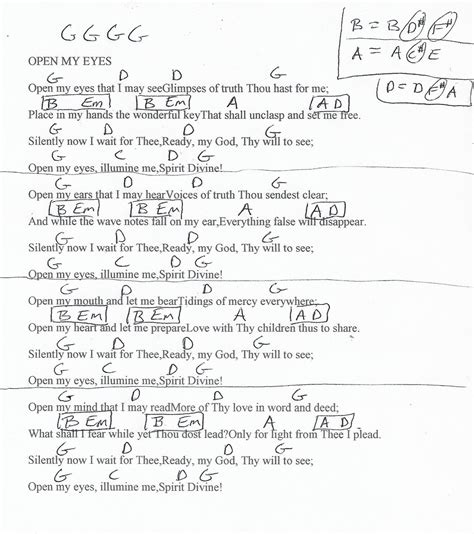 G G G G
B = B D# F#
A = A C# E
D = D F# A
OPEN MY EYES
G D D G
Open my eyes that I may seeGlimpses of truth Thou hast for me;
B Em B Em A A D
Place in my hands the wonderful keyThat shall unclasp and set me free.
G D D G
Silently now I wait for Thee,Ready, my God, Thy will to see;
G C D G
Open my eyes, illumine me,Spirit Divine!
G D D G
Open my ears that I may hearVoices of truth Thou sendest clear;
B Em B Em A A D
And while the wave notes fall on my ear,Everything false will disappear.
G D D G
Silently now I wait for Thee,Ready, my God, Thy will to see;
G C D G
Open my eyes, illumine me,Spirit Divine!
G D D G
Open my mouth and let me bearTidings of mercy everywhere;
B Em B Em A A D
Open my heart and let me prepareLove with Thy children thus to share.
G D D G
Silently now I wait for Thee,Ready, my God, Thy will to see;
G C D G
Open my eyes, illumine me,Spirit Divine!
G D D G
Open my mind that I may readMore of Thy love in word and deed;
B Em B Em A A D
What shall I fear while yet Thou dost lead?Only for light from Thee I plead.
G D D G
Silently now I wait for Thee,Ready, my God, Thy will to see;
G C D G
Open my eyes, illumine me,Spirit Divine!